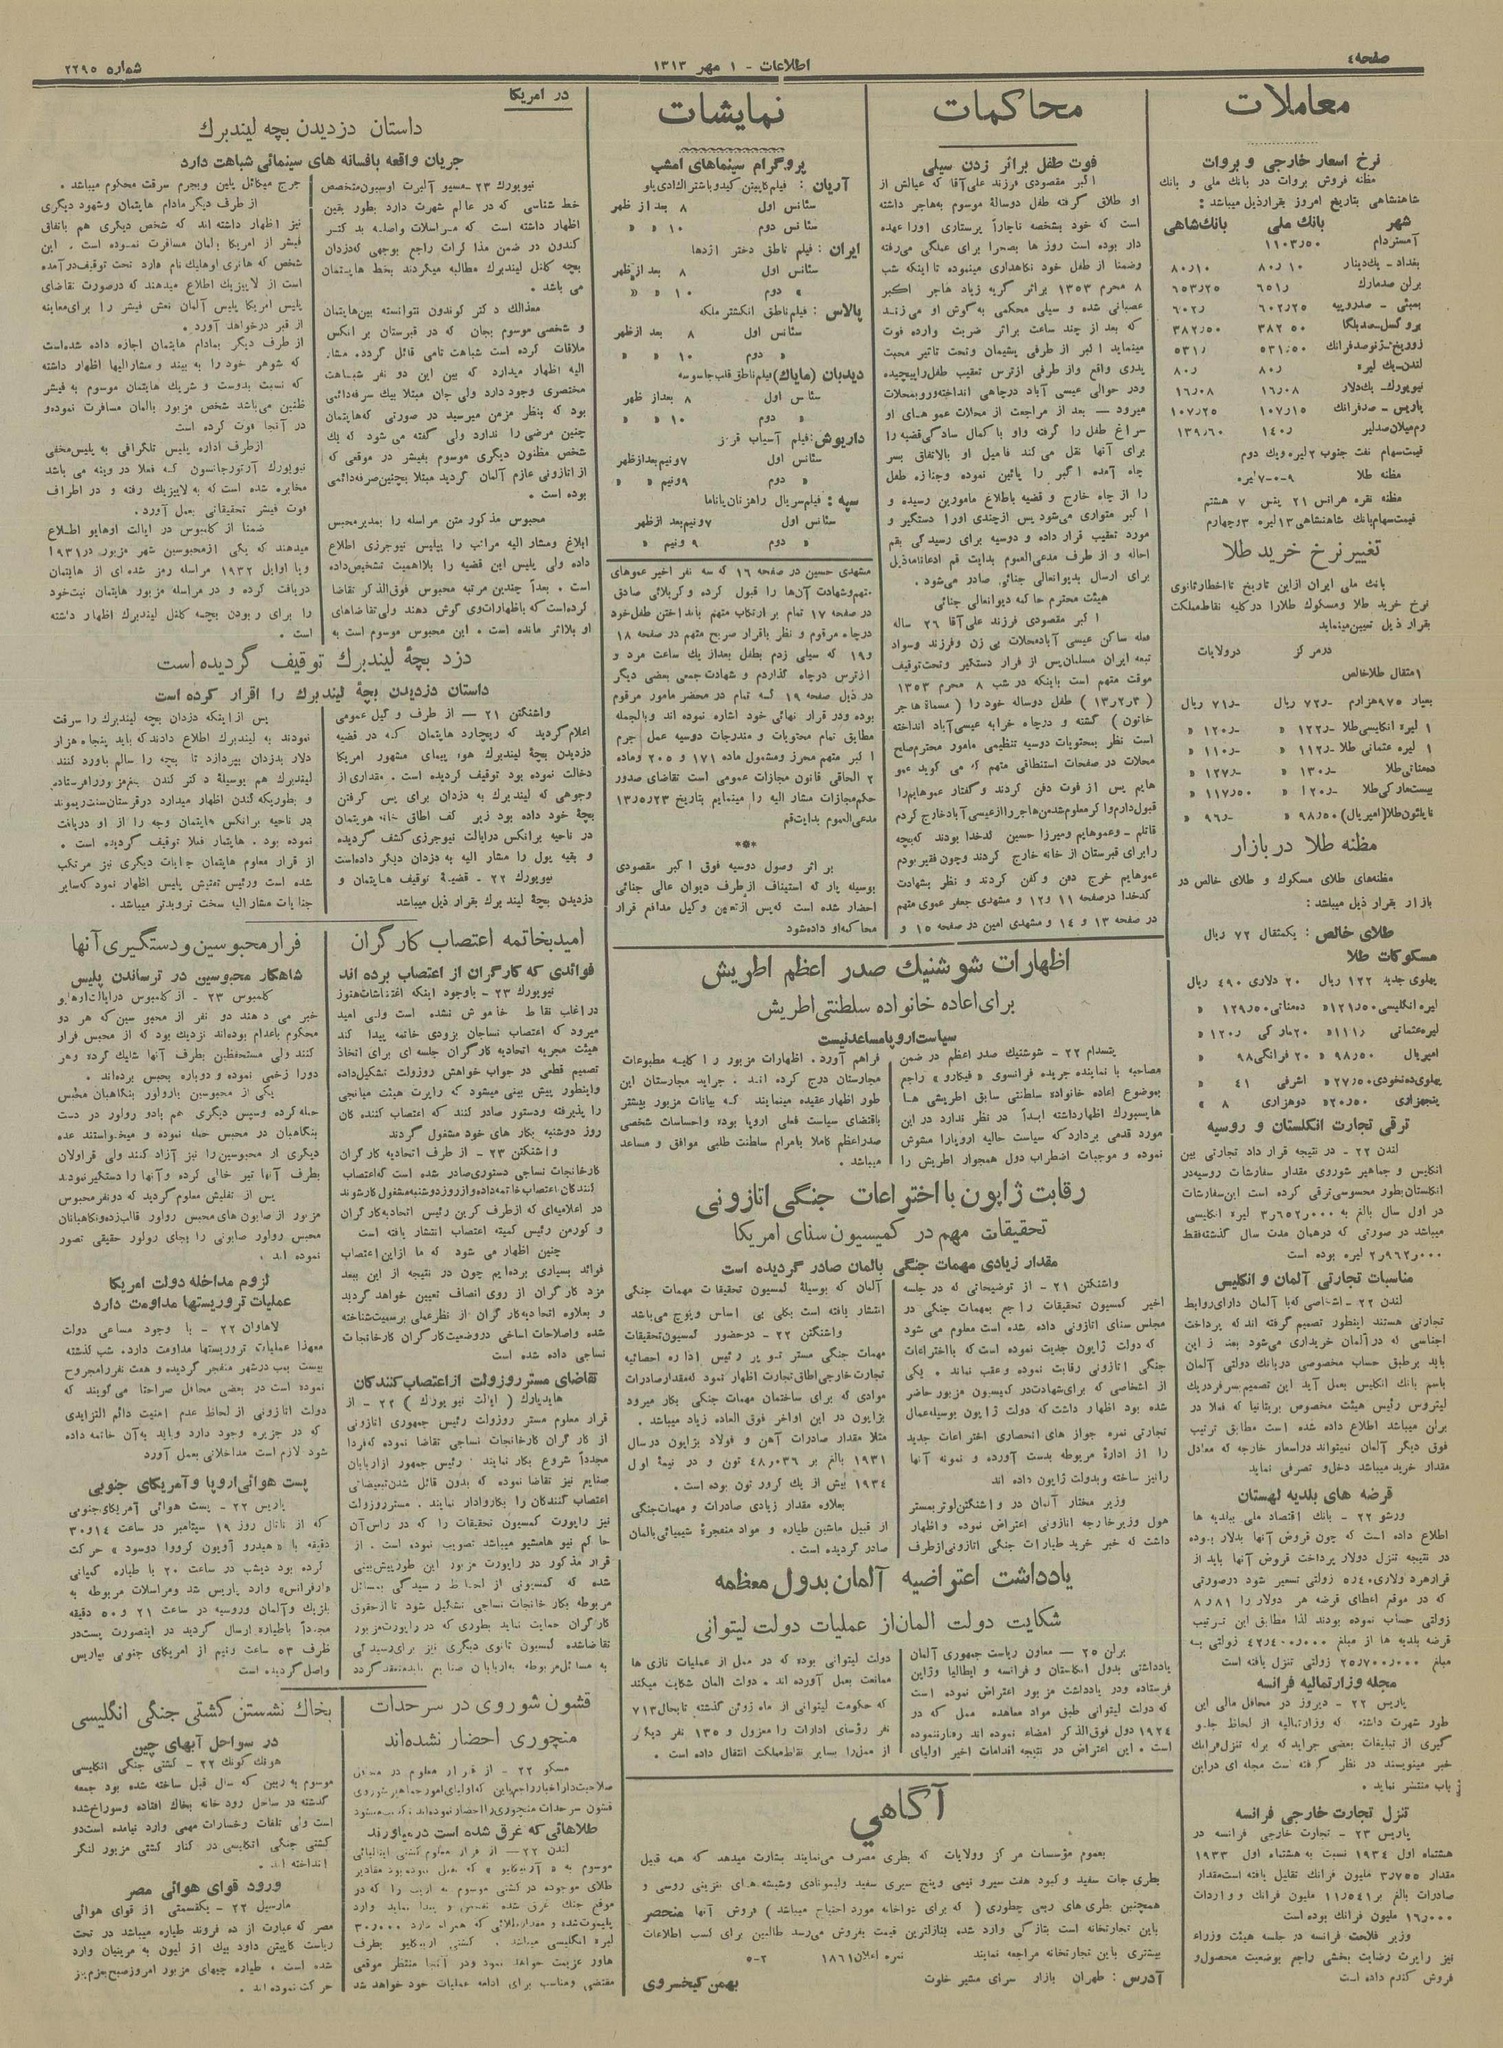 صفحه ٤
اطلاعات - ۱ مهر ۱۳۱۳
شماره ۲۲۹۵
معاملات
نرخ اسعار خارجی و بروات
مظنه فروش بروات در بانك ملی و بانك
شاهنشاهی بتاریخ امروز بقرار ذیل میباشد :
شهر بانك ملی بانك شاهی
آمستردام ۱۱۰۳٫۵۰
بغداد - یك دینار ۸۰٫۱۰ ۸۰٫۱۰
برلن صدمارك ۶۵۱٫ ۶۵۳٫۲۵
بمبئی - صدروپیه ۶۰۲٫۲۵ ۶۰۲٫
بروکسل - صدبلگا ۳۸۲٫۵۰ ۳۸۲٫۵۰
زوریخ - ژنو صدفرانك ۵۳۱٫۵۰ ۵۳۱٫
لندن - یك لیره ۸۰٫ ۸۰٫
نیویورك - یك دلار ۱۶٫۰۸ ۱۶٫۰۸
پاریس - صدفرانك ۱۰۷٫۱۵ ۱۰۷٫۲۵
رم میلان صدلیر ۱۴۰٫ ۱۳۹٫۶۰
قیمت سهام نفت جنوب ۲ لیره و یك دوم
مظنه طلا ۹-۰-۷ لیره
مظنه نقره هرانس ۲۱ پنس ۷ هشتم
قیمت سهام بانك شاهنشاهی ۱۳ لیره ۳ چهارم
تغییر نرخ خرید طلا
بانك ملی ایران از این تاریخ تا اخطار ثانوی
نرخ خرید طلا و مسکوك طلا را در کلیه نقاط مملکت
بقرار ذیل تعیین مینماید
در مرکز در ولایات
۱ مثقال طلا خالص
بعیار ۹۷۵ هزارم ۷۲٫- ریال ۷۱٫- ریال
۱ لیره انگلیسی طلا ۱۲۲٫- « ۱۲۰٫- «
۱ لیره عثمانی طلا ۱۱۲٫- « ۱۱۰٫- «
ده مناتی طلا ۱۳۰٫- « ۱۲۷٫- «
بیست مارکی طلا ۱۲۰٫- « ۱۱۷٫۵۰ «
ناپلئون طلا (امپریال) ۹۸٫۵۰ « ۹۶٫- «
مظنه طلا در بازار
مظنه های طلای مسکوك و طلای خالص در
بازار بقرار ذیل میباشد :
طلای خالص : یکمثقال ۷۲ ریال
مسکوکات طلا
پهلوی جدید ۱۲۲ ریال ۲۰ دلاری ۴۹۰ ریال
لیره انگلیسی ۱۲۱٫۵۰ « ده مناتی ۱۲۹٫۵۰ «
لیره عثمانی ۱۱۱٫ « ۲۰ مارکی ۱۲۰٫ «
امپریال ۹۸٫۵۰ « ۲۰ فرانکی ۹۸ «
پهلوی ده نخودی ۲۷٫۵۰ « اشرفی ۴۱ «
پنجهزاری ۲۰٫۵۰ « دوهزاری ۸ «
ترقی تجارت انگلستان و روسیه
لندن ۲۲ - در نتیجه قرار داد تجارتی بین
انگلیس و جماهیر شوروی مقدار سفارشات روسیه در
انگلستان بطور محسوسی ترقی کرده است این سفارشات
در اول سال بالغ به ۳٫۶۵۲٫۰۰۰ لیره انگلیسی
میباشد در صورتی که در همان مدت سال گذشته فقط
۲٫۹۶۲٫۰۰۰ لیره بوده است
مناسبات تجارتی آلمان و انگلیس
لندن ۲۲ - اشخاصی که با آلمان دارای روابط
تجارتی هستند اینطور تصمیم گرفته اند که پرداخت
اجناسی که در آلمان خریداری می‌شود بعد از این
باید بر طبق حساب مخصوصی در بانك دولتی آلمان
باسم بانك انگلیس بعمل آید این تصمیم بسر فردریك
لیتروس رئیس هیئت مخصوص بریتانیا که فعلا در
برلن میباشد اطلاع داده شده است مطابق ترتیب
فوق دیگر آلمان نمیتواند در اسعار خارجه که معادل
مقدار خرید میباشد دخل و تصرفی نماید
قرضه های بلدیه لهستان
ورشو ۲۲ - بانك اقتصاد ملی ببلدیه ها
اطلاع داده است که چون قروض آنها بدلار بوده
در نتیجه تنزل دولار پرداخت قروض آنها باید از
قرار هر دلاری ۵٫۴۰ زولتی تسعیر شود در صورتی
که در موقع اعطای قرضه هر دولار را ۸٫۸۱
زولتی حساب نموده بودند لذا مطابق این ترتیب
قرضه بلدیه ها از مبلغ ۴۲٫۴۰۰٫۰۰۰ زولتی به
مبلغ ۲۵٫۷۰۰٫۰۰۰ زولتی تنزل یافته است
مجله وزارت مالیه فرانسه
پاریس ۲۲ - دیروز در محافل مالی این
طور شهرت داشته که وزارت مالیه از لحاظ جلو
گیری از تبلیغات بعضی جراید که برله تنزل فرانك
خبر مینویسند در نظر گرفته است مجله ای در این
باب منتشر نماید .
تنزل تجارت خارجی فرانسه
پاریس ۲۳ - تجارت خارجی فرانسه در
هشتماه اول ۱۹۳۴ نسبت به هشتماه اول ۱۹۳۳
مقدار ۳٫۷۵۵ میلیون فرانك تقلیل یافته است مقدار
صادرات بالغ بر ۱۱٫۵۴۱ ملیون فرانك و واردات
۱۶٫۰۰۰ ملیون فرانك بوده است
وزیر فلاحت فرانسه در جلسه هیئت وزراء
نیز راپرت رضایت بخشی راجع بوضعیت محصول و
فروش گندم داده است
محاکمات
فوت طفل براثر زدن سیلی
اکبر مقصودی فرزند علی آقا که عیالش از
او طلاق گرفته طفل دوسالۀ موسوم به هاجر داشته
است که خود بشخصه ناچاراً پرستاری اورا عهده
دار بوده است روز ها بصحرا برای عملگی میرفته
وضمنا از طفل خود نگاهداری مینموده تا اینکه شب
۸ محرم ۱۳۵۳ براثر گریه زیاد هاجر اکبر
عصبانی شده و سیلی محکمی به گوش او میزند
که بعد از چند ساعت براثر ضربت وارده فوت
مینماید اکبر از طرفی پشیمان و تحت تاثیر محبت
پدری واقع و از طرفی از ترس تعقیب طفل را پیچیده
و در حوالی عیسی آباد در چاهی انداخته و رو بمحلات
میرود — بعد از مراجعت از محلات عموهای او
سراغ طفل را گرفته و او با کمال سادگی قضیه را
برای آنها نقل می‌کند فامیل او بالاتفاق بسر
چاه آمده اکبر را پائین نموده و جنازه طفل
را از چاه خارج و قضیه باطلاع مامورین رسیده و
اکبر متواری می‌شود پس از چندی اورا دستگیر و
مورد تعقیب قرار داده و دوسیه برای رسیدگی بقم
احاله و از طرف مدعی العموم بدایت قم ادعانامه ذیل
برای ارسال بدیوانعالی جنائی صادر می‌شود .
هیئت محترم حاکمه دیوانعالی جنائی
اکبر مقصودی فرزند علی آقا ۲۶ ساله
عمله ساکن عیسی آباد محلات بی زن و فرزند و سواد
تبعه ایران مسلمان پس از فرار دستگیر و تحت توقیف
موقت متهم است باینکه در شب ۸ محرم ۱۳۵۳
(۱۳٫۲٫۳) طفل دوساله خود را (مسماة هاجر
خاتون) کشته و در چاه خرابه عیسی آباد انداخته
است نظر بمحتویات دوسیه تنظیمی مامور محترم صلح
محلات در صفحات استنطاقی متهم که می گوید عمو
هایم پس از فوت دفن کردند و گفتار عموهایم را
قبول دارم و اکبر معلوم شد من هاجر را از عیسی آباد خارج کردم
قاتلم - و عموهایم و میرزا حسین کدخدا بودند که بچه
را برای قبرستان از خانه خارج کردند و چون فقیر بودم
عموهایم خرج دفن و کفن کردند و نظر بشهادت
کدخدا در صفحه ۱۱ و ۱۲ و مشهدی جعفر عموی متهم
در صفحه ۱۳ و ۱۴ و مشهدی امین در صفحه ۱۵ و
نمایشات
پروگرام سینماهای امشب
آریان : فیلم کاپیتن کید و باشتراك ادی پلو
سئانس اول ۸ بعد از ظهر
سئانس دوم ۱۰ « «
ایران : فیلم ناطق دختر اژدها
سئانس اول ۸ بعد از ظهر
« دوم ۱۰ « «
پالاس : فیلم ناطق انگشتر ملکه
سئانس اول ۸ بعد ازظهر
« دوم ۱۰ « «
دیدبان (مایاك) فیلم ناطق قلب جاسوسه
سئانس اول ۸ بعداز ظهر
« دوم ۱۰ « «
داریوش : فیلم آسیاب قرمز
سئانس اول ۷ ونیم بعدازظهر
« دوم ۹ ونیم « «
سپه : فیلم سریال راهزنان پاناما
سئانس اول ۷ ونیم بعد ازظهر
« دوم ۹ ونیم « «
مشهدی حسین در صفحه ۱۶ که سه نفر اخیر عموهای
متهم و شهادت آن‌ها را قبول کرده و کربلائی صادق
در صفحه ۱۷ تمام بر ارتکاب متهم بانداختن طفل خود
در چاه مرقوم و نظر باقرار صریح متهم در صفحه ۱۸
و ۱۹ که سیلی زدم بطفل بعداز یك ساعت مرد و
ازترس در چاه گذاردم و شهادت جمعی بعضی دیگر
در ذیل صفحه ۱۹ که تمام در محضر مامور مرقوم
بوده و در قرار نهائی خود اشاره نموده اند و بالجمله
مطابق تمام محتویات و مندرجات دوسیه عمل و جرم
اکبر متهم محرز و مشمول ماده ۱۷۱ و ۲۰۵ و ماده
۲ الحاقی قانون مجازات عمومی است تقاضای صدور
حکم مجازات مشار الیه را مینمایم بتاریخ ۱۳٫۵٫۲۳
مدعی العموم بدایت قم
***
بر اثر وصول دوسیه فوق اکبر مقصودی
بوسیله پارکه استیناف از طرف دیوان عالی جنائی
احضار شده است که پس از تعیین وکیل مدافع قرار
محاکمه او داده شود
اظهارات شوشنیك صدر اعظم اطریش
برای اعاده خانواده سلطنتی اطریش
سیاست اروپا مساعد نیست
شوشنیك صدر اعظم در ضمن
مصاحبه با نماینده جریده فرانسوی « فیگارو » راجع
بموضوع اعاده خانواده سلطنتی سابق اطریشی ها
هابسبورك اظهار داشته ابداً در نظر ندارد در این
مورد قدمی بردارد که سیاست حالیه اروپا را مشوش
نموده و موجبات اضطراب دول همجوار اطریش را
فراهم آورد . اظهارات مزبور را کلیه مطبوعات
مجارستان درج کرده اند . جراید مجارستان این
طور اظهار عقیده مینمایند که بیانات مزبور بیشتر
باقتضای سیاست فعلی اروپا بوده و احساسات شخصی
صدر اعظم کاملا بامرام سلطنت طلبی موافق و مساعد
میباشد .
رقابت ژاپون با اختراعات جنگی اتازونی
تحقیقات مهم در کمیسیون سنای امریکا
مقدار زیادی مهمات جنگی بالمان صادر گردیده است
واشنگتن ۲۱ - از توضیحاتی که در جلسه
اخیر کمسیون تحقیقات راجع بمهمات جنگی در
مجلس سنای اتازونی داده شده است معلوم می شود
که دولت ژاپون جدیت نموده است که با اختراعات
جنگی اتازونی رقابت نموده و عقب نماند . یکی
از اشخاصی که برای شهادت در کمیسیون مزبور حاضر
شده بود اظهار داشت که دولت ژاپون بوسیله عمال
تجارتی نمره جواز های انحصاری اختراعات جدید
را از ادارۀ مربوطه بدست آورده و نمونه آنها
را نیز ساخته و بدولت ژاپون داده اند
وزیر مختار آلمان در واشنگتن لوتر بمستر
هول وزیر خارجه اتازونی اعتراض نموده و اظهار
داشت که خبر خرید طیارات جنگی اتازونی از طرف
آلمان که بوسیلۀ کمسیون تحقیقات مهمات جنگی
انتشار یافته است بکلی بی اساس و پوچ میباشد
واشنگتن ۲۲ - در حضور کمسیون تحقیقات
مهمات جنگی مستر رئیس اداره احصائیه
تجارت خارجی اطاق تجارت اظهار نمود که مقدار صادرات
موادی که برای ساختمان مهمات جنگی بکار میرود
بژاپون در این اواخر فوق العاده زیاد میباشد .
مثلا مقدار صادرات آهن و فولاد بژاپون در سال
۱۹۳۱ بالغ بر ۴۸٫۰۳۶ تون و در نیمۀ اول
۱۹۳۴ بیش از یك کرور تون بوده است .
بعلاوه مقدار زیادی صادرات و مهمات جنگی
از قبیل ماشین طیاره و مواد منفجرۀ شیمیائی بالمان
صادر گردیده است .
یادداشت اعتراضیه آلمان بدول معظمه
شکایت دولت المان از عملیات دولت لیتوانی
برلن ۲۵ — معاون ریاست جمهوری آلمان
یادداشتی بدول انگلستان و فرانسه و ایطالیا و ژاپن
فرستاده و در یادداشت مزبور اعتراض نموده است
که دولت لیتوانی طبق مواد معاهده ممل که در
۱۹۲۴ دول فوق الذکر امضاء نموده اند رفتار ننموده
است . این اعتراض در نتیجه اقدامات اخیر اولیای
دولت لیتوانی بوده که در ممل از عملیات نازی ها
ممانعت بعمل آورده اند . دولت المان شکایت میکند
که حکومت لیتوانی از ماه ژوئن گذشته تا بحال ۷۱۳
نفر رؤسای ادارات را معزول و ۱۳۵ نفر دیگر
از ممل را بسایر نقاط مملکت انتقال داده است .
آگاهی
بعموم مؤسسات مرکز و ولایات که بطری مصرف می‌نمایند بشارت میدهد که همه قبیل
بطری جات سفید و کبود هفت سیر و نیمی و پنج سیری سفید و لیمونادی و شیشه های بنزینی روسی و
همچنین بطری های ربعی چطوری ( که برای دواخانه مورد احتیاج میباشد ) فروش آنها منحصر
باین تجارتخانه است بتازگی وارد شده بنازلترین قیمت بفروش می‌رسد طالبین برای کسب اطلاعات
بیشتری باین تجارتخانه مراجعه نمایند نمره اعلان ۱۸۶۱ ۲-۵
آدرس : طهران بازار سرای مشیر خلوت
بهمن کیخسروی
در امریکا
داستان دزدیدن بچه لیندبرك
جریان واقعه بافسانه های سینمائی شباهت دارد
نیویورك ۲۳ - مسیو آلبرت اوسبورن متخصص
خط شناسی که در عالم شهرت دارد بطور یقین
اظهار داشته است که مراسلات واصله بدکتر
کندون در ضمن مذاکرات راجع بوجهی که دزدان
بچه کلنل لیندبرك مطالبه میکردند بخط هایتمان
می باشد .
معذالك دکتر کوندون نتوانسته بین هایتمان
و شخصی موسوم بجان که در قبرستان برانکس
ملاقات کرده است شباهت تامی قائل گردد. مشار
الیه اظهار میدارد که بین این دو نفر شباهت
مختصری وجود دارد ولی جان مبتلا بیك سرفه دائمی
بود که بنظر مزمن میرسید در صورتی که هایتمان
چنین مرضی را ندارد ولی گفته می شود که یك
شخص مظنون دیگری موسوم بفیشر در موقعی که
از اتازونی عازم آلمان گردید مبتلا بچنین سرفه دائمی
بوده است .
محبوس مذکور متن مراسله را بمدیر محبس
ابلاغ و مشار الیه مراتب را بپلیس نیوجرزی اطلاع
داده ولی پلیس این قضیه را بلا اهمیت تشخیص داده
است . بعداً چندین مرتبه محبوس فوق الذکر تقاضا
کرده است که باظهارات وی گوش دهند ولی تقاضاهای
او بلااثر مانده است . این محبوس موسوم است به
جرج میکائل پاین و بجرم سرقت محکوم میباشد .
از طرف دیگر مادام هایتمان و شهود دیگری
نیز اظهار داشته اند که شخص دیگری هم باتفاق
فیشر از امریکا بالمان مسافرت نموده است . این
شخص که هانری اوهلیك نام دارد تحت توقیف درآمده
است از لایپزیك اطلاع میدهند که در صورت تقاضای
پلیس امریکا پلیس آلمان نعش فیشر را برای معاینه
از قبر در خواهد آورد .
از طرف دیگر بمادام هایتمان اجازه داده شده است
که شوهر خود را به بیند و مشار الیها اظهار داشته
که نسبت بدوست و شریك هایتمان موسوم به فیشر
ظنین می‌باشد شخص مزبور بالمان مسافرت نموده و
در آنجا فوت کرده است
از طرف اداره پلیس تلگرافی به پلیس مخفی
نیویورك آرتور جانسون که فعلا در وینه می باشد
مخابره شده است که به لایپزیك رفته و در اطراف
فوت فیشر تحقیقاتی بعمل آورد .
ضمنا از کلمبوس در ایالت اوهایو اطلاع
میدهند که یکی از محبوسین شهر مزبور در ۱۹۳۱
و یا اوایل ۱۹۳۲ مراسله رمز شده ای از هایتمان
دریافت کرده و در مراسله مزبور هایتمان نیت خود
را برای ربودن بچه کلنل لیندبرك اظهار داشته
است .
دزد بچۀ لیندبرك توقیف گردیده است
داستان دزدیدن بچۀ لیندبرك را اقرار کرده است
واشنگتن ۲۱ — از طرف وکیل عمومی
اعلام گردید که ریچارد هایتمان که در قضیه
دزدیدن بچۀ لیندبرك هواپیمای مشهور امریکا
دخالت نموده بود توقیف گردیده است . مقداری از
وجوهی که لیندبرك به دزدان برای پس گرفتن
بچۀ خود داده بود زیر کف اطاق خانه هویتمان
در ناحیه برانکس در ایالت نیوجرزی کشف گردیده
و بقیه پول را مشار الیه به دزدان دیگر داده است
نیویورك ۲۲ - قضیۀ توقیف هایتمان و
دزدیدن بچۀ لیندبرك بقرار ذیل میباشد
پس از اینکه دزدان بچه لیندبرك را سرقت
نمودند به لیندبرك اطلاع دادند که باید پنجاه هزار
دلار بدزدان بپردازد تا بچه را سالم باورد کنند
لیندبرك هم بوسیلۀ دکتر کندن فرستاده
و بطوریکه کندن اظهار میدارد در قبرستان سنت ریموند
در ناحیه برانکس هایتمان وجه را از او دریافت
نموده بود . هایتمان فعلا توقیف گردیده است .
از قرار معلوم هایتمان جنایات دیگری نیز مرتکب
شده است و رئیس تفتیش پلیس اظهار نمود که سایر
جنایات مشار الیه سخت تر و بدتر میباشد .
امید بخاتمه اعتصاب کارگران
فوائدی که کارگران از اعتصاب برده اند
نیویورك ۲۳ - باوجود اینکه اغتشاشات هنوز
در اغلب نقاط خاموش نشده است ولی امید
میرود که اعتصاب نساجان بزودی خاتمه پیدا کند
هیئت مجریه اتحادیه کارگران جلسه ای برای اتخاذ
تصمیم قطعی در جواب خواهش روزولت تشکیل داده
و اینطور پیش بینی میشود که راپرت هیئت میانجی
را پذیرفته و دستور صادر کنند که اعتصاب کننده گان
روز دوشنبه بکار های خود مشغول گردند
واشنگتن ۲۳ - از طرف اتحادیه کارگران
کارخانجات نساجی دستوری صادر شده است که اعتصاب
کنندگان اعتصاب خاتمه داده و از روز دوشنبه مشغول کار شوند
در اعلامیه‌ای که از طرف گرین رئیس اتحادیه کارگران
و گورمن رئیس کمیته اعتصاب انتشار یافته است
چنین اظهار می شود که ما از این اعتصاب
فوائد بسیاری برده‌ایم چون در نتیجه از این ببعد
مزد کارگران از روی انصاف تعیین خواهد گردید
و بعلاوه اتحادیه کارگران از نظر عملی برسمیت شناخته
شده و اصلاحات اساسی در وضعیت کارگران کارخانجات
نساجی داده شده است
تقاضای مستر روزولت از اعتصاب کنندگان
هایدپارك ( ایالت نیویورك ) ۲۲ - از
قرار معلوم مستر روزولت رئیس جمهوری اتازونی
از کارگران کارخانجات نساجی تقاضا نموده که فردا
مجدداً شروع بکار نمایند . رئیس جمهور از اربابان
صنایع نیز تقاضا نموده که بدون قائل شدن تبعیضاتی
اعتصاب کنندگان را بکار وادار نمایند . مستر روزولت
نیز راپورت کمسیون تحقیقات را که در راس آن
حاکم نیو هامشیو میباشد تصویب نموده است . از
قرار مذکور در راپورت مزبور این طور پیش بینی
شده که کمسیونی از لحاظ رسیدگی بمسائل
مربوطه بکارخانجات نساجی تشکیل شود تا از حقوق
کارگران حمایت نماید بطوری که در راپورت مزبور
تقاضا شده کمسیون ثانوی دیگری نیز برای رسیدگی
به مسائل مربوطه به اربابان صنایع باید منعقد گردد
قشون شوروی در سرحدات
منچوری احضار نشده‌اند
مسکو ۲۲ - از قرار معلوم در
صلاحیت دار اخبار راجع باین که اولیای امور جماهیر شوروی
قشون سرحدات منچوری را احضار نموده اند
طلاهائی که غرق شده است در میاورند
لندن ۲۲ — از قرار معلوم کشتی ایتالیائی
موسوم به « آرتیگلیو » که
طلای موجوده در کشتی موسوم به را که در
موقع جنك غرق شده
۳۰٫۰۰۰
لیره انگلیسی میباشد . کشتی ارتیگلیو بطرف
هاور عزیمت خواهد نمود و در آنجا منتظر موقعی
مقتضی و مناسب برای ادامه عملیات خود خواهد شد
فرار محبوسین و دستگیری آنها
شاهکار محبوسین در ترساندن پلیس
کلمبوس ۲۳ - از کلمبوس در ایالت اوهایو
خبر می دهند دو نفر از محبوسین که هر دو
محکوم باعدام بوده‌اند نزدیك بود که از محبس فرار
کنند ولی مستحفظین بطرف آنها شلیك کرده و هر
دورا زخمی نموده و دوباره بحبس برده‌اند .
یکی از محبوسین بارولور بنگاهبان محبس
حمله کرده و سپس دیگری هم بادو رولور در دست
بنگاهبان در محبس حمله نموده و میخواستند عده
دیگری از محبوسین را نیز آزاد کنند ولی قراولان
بطرف آنها تیر خالی کرده و آنها را دستگیر نمودند
پس از تفتیش معلوم گردید که دو نفر محبوس
مزبور از صابون های محبس رولور قالب زده و نگاهبانان
محبس رولور صابونی را بجای رولور حقیقی تصور
نموده اند .
لزوم مداخله دولت امریکا
عملیات تروریستها مداومت دارد
لاهاوان ۲۲ - با وجود مساعی دولت
معهذا عملیات تروریستها مداومت دارد. شب گذشته
بیست بمب در شهر منفجر گردیده و هفت نفر را مجروح
نموده است در بعضی محافل صراحتا می گویند که
دولت اتازونی از لحاظ عدم امنیت دائم التزایدی
که در جزیره وجود دارد و باید به آن خاتمه داده
شود لازم است مداخلاتی بعمل آورد
پست هوائی اروپا و آمریکای جنوبی
پاریس ۲۲ - پست هوائی آمریکای جنوبی
که از ناتال روز ۱۹ سپتامبر در ساعت ۱۴ و ۳۰
دقیقه با « هیدرو آویون کرووا دوسود » حرکت
کرده بود دیشب در ساعت ۲۰ با طیاره کمپانی
« ارفرانس » وارد پاریس شد و مراسلات مربوطه به
بلژیك و آلمان و روسیه در ساعت ۲۱ و ۵۰ دقیقه
مجدداً باطیاره ارسال گردید در اینصورت پست در
ظرف ۵۳ ساعت ونیم از امریکای جنوبی بپاریس
واصل گردیده است
بخاك نشستن کشتی جنگی انگلیسی
در سواحل آبهای چین
هونك کونك ۲۲ - کشتی جنگی انگلیسی
موسوم به ربین که سال قبل ساخته شده بود جمعه
گذشته در ساحل رود خانه بخاك افتاده و سوراخ شده
است ولی تلفات و خسارات مهمی وارد نیامده است دو
کشتی جنگی انگلیسی در کنار کشتی مزبور لنگر
انداخته اند.
ورود قوای هوائی مصر
مارسیل ۲۲ - یکقسمتی از قوای هوائی
مصر که عبارت از ده فروند طیاره میباشد در تحت
ریاست کاپیتن داود بیك از لیون به مرینیان وارد
شده است . طیاره چیهای مزبور امروز صبح بعزم پیز
حرکت نموده اند .